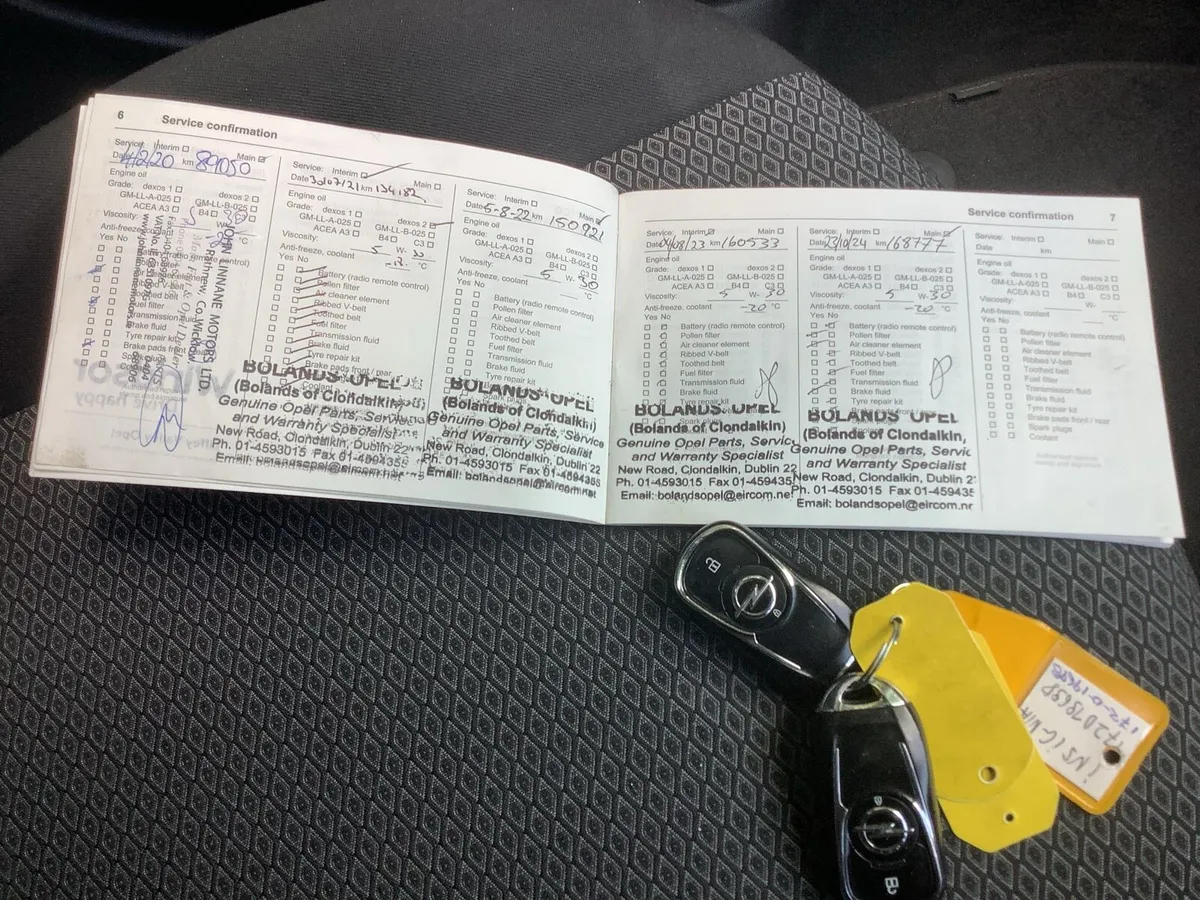 6 Service confirmation
Service: Interim Main
Date 4/2/20 km 89050
Engine oil
Grade: dexos 1
GM-LL-A-025
ACEA A3 B4
Viscosity:
Anti-freeze, coolant
Yes No
Fuel filter
Transmission fluid
Brake fluid
Tyre repair kit
JOHN KINNANE MOTORS LTD
Rathnew, Co. Wicklow
Service: Interim Main
Date 30/07/21 km 134182
Engine oil
Grade: dexos 1 dexos 2
GM-LL-A-025 GM-LL-B-025
ACEA A3 B4 C3
Viscosity: 5 W- 30
Anti-freeze, coolant °C
Yes No
Battery (radio remote control)
Pollen filter
Air cleaner element
Ribbed V-belt
Toothed belt
Fuel filter
Transmission fluid
Brake fluid
Tyre repair kit
Brake pads front / rear
BOLANDS OPEL
(Bolands of Clondalkin)
Genuine Opel Parts, Service
and Warranty Specialist
New Road, Clondalkin, Dublin 22
Ph. 01-4593015 Fax 01-459435
Service: Interim Main
Date 5-8-22 km 150921
Engine oil
Grade: dexos 1 dexos 2
GM-LL-A-025 GM-LL-B-025
ACEA A3 B4 C3
Viscosity: 5 W- 30
Anti-freeze, coolant °C
Yes No
Battery (radio remote control)
Pollen filter
Air cleaner element
Ribbed V-belt
Toothed belt
Fuel filter
Transmission fluid
Brake fluid
Tyre repair kit
BOLANDS OPEL
(Bolands of Clondalkin)
Genuine Opel Parts, Service
and Warranty Specialist
New Road, Clondalkin, Dublin 22
Ph. 01-4593015 Fax 01-4594355
Email: bolandsopel@eircom.net
Service confirmation 7
Service: Interim Main
Date 04/08/23 km 160533
Engine oil
Grade: dexos 1 dexos 2
GM-LL-A-025 GM-LL-B-025
ACEA A3 B4 C3
Viscosity: 5 W- 30
Anti-freeze, coolant -20 °C
Yes No
Battery (radio remote control)
Pollen filter
Air cleaner element
Ribbed V-belt
Toothed belt
Fuel filter
Transmission fluid
Brake fluid
Tyre repair kit
BOLANDS OPEL
(Bolands of Clondalkin)
Genuine Opel Parts, Servic
and Warranty Specialist
New Road, Clondalkin, Dublin 22
Ph. 01-4593015 Fax 01-459435
Email: bolandsopel@eircom.ne
Service: Interim Main
Date 23/10/24 km 168777
Engine oil
Grade: dexos 1 dexos 2
GM-LL-A-025 GM-LL-B-025
ACEA A3 B4 C3
Viscosity: 5 W- 30
Anti-freeze, coolant -20 °C
Yes No
Battery (radio remote control)
Pollen filter
Air cleaner element
Ribbed V-belt
Toothed belt
Fuel filter
Transmission fluid
Brake fluid
Tyre repair kit
BOLANDS OPEL
(Bolands of Clondalkin,
Genuine Opel Parts, Servic
and Warranty Specialist
New Road, Clondalkin, Dublin 2
Ph. 01-4593015 Fax 01-459435
Email: bolandsopel@eircom.nr
Service: Interim Main
Date km
Engine oil
Grade: dexos 1 dexos 2
GM-LL-A-025 GM-LL-B-025
ACEA A3 B4 C3
Viscosity: W-
Anti-freeze, coolant °C
Yes No
Battery (radio remote control)
Pollen filter
Air cleaner element
Ribbed V-belt
Toothed belt
Fuel filter
Transmission fluid
Brake fluid
Tyre repair kit
Brake pads front / rear
Spark plugs
Coolant
INSIGNIA